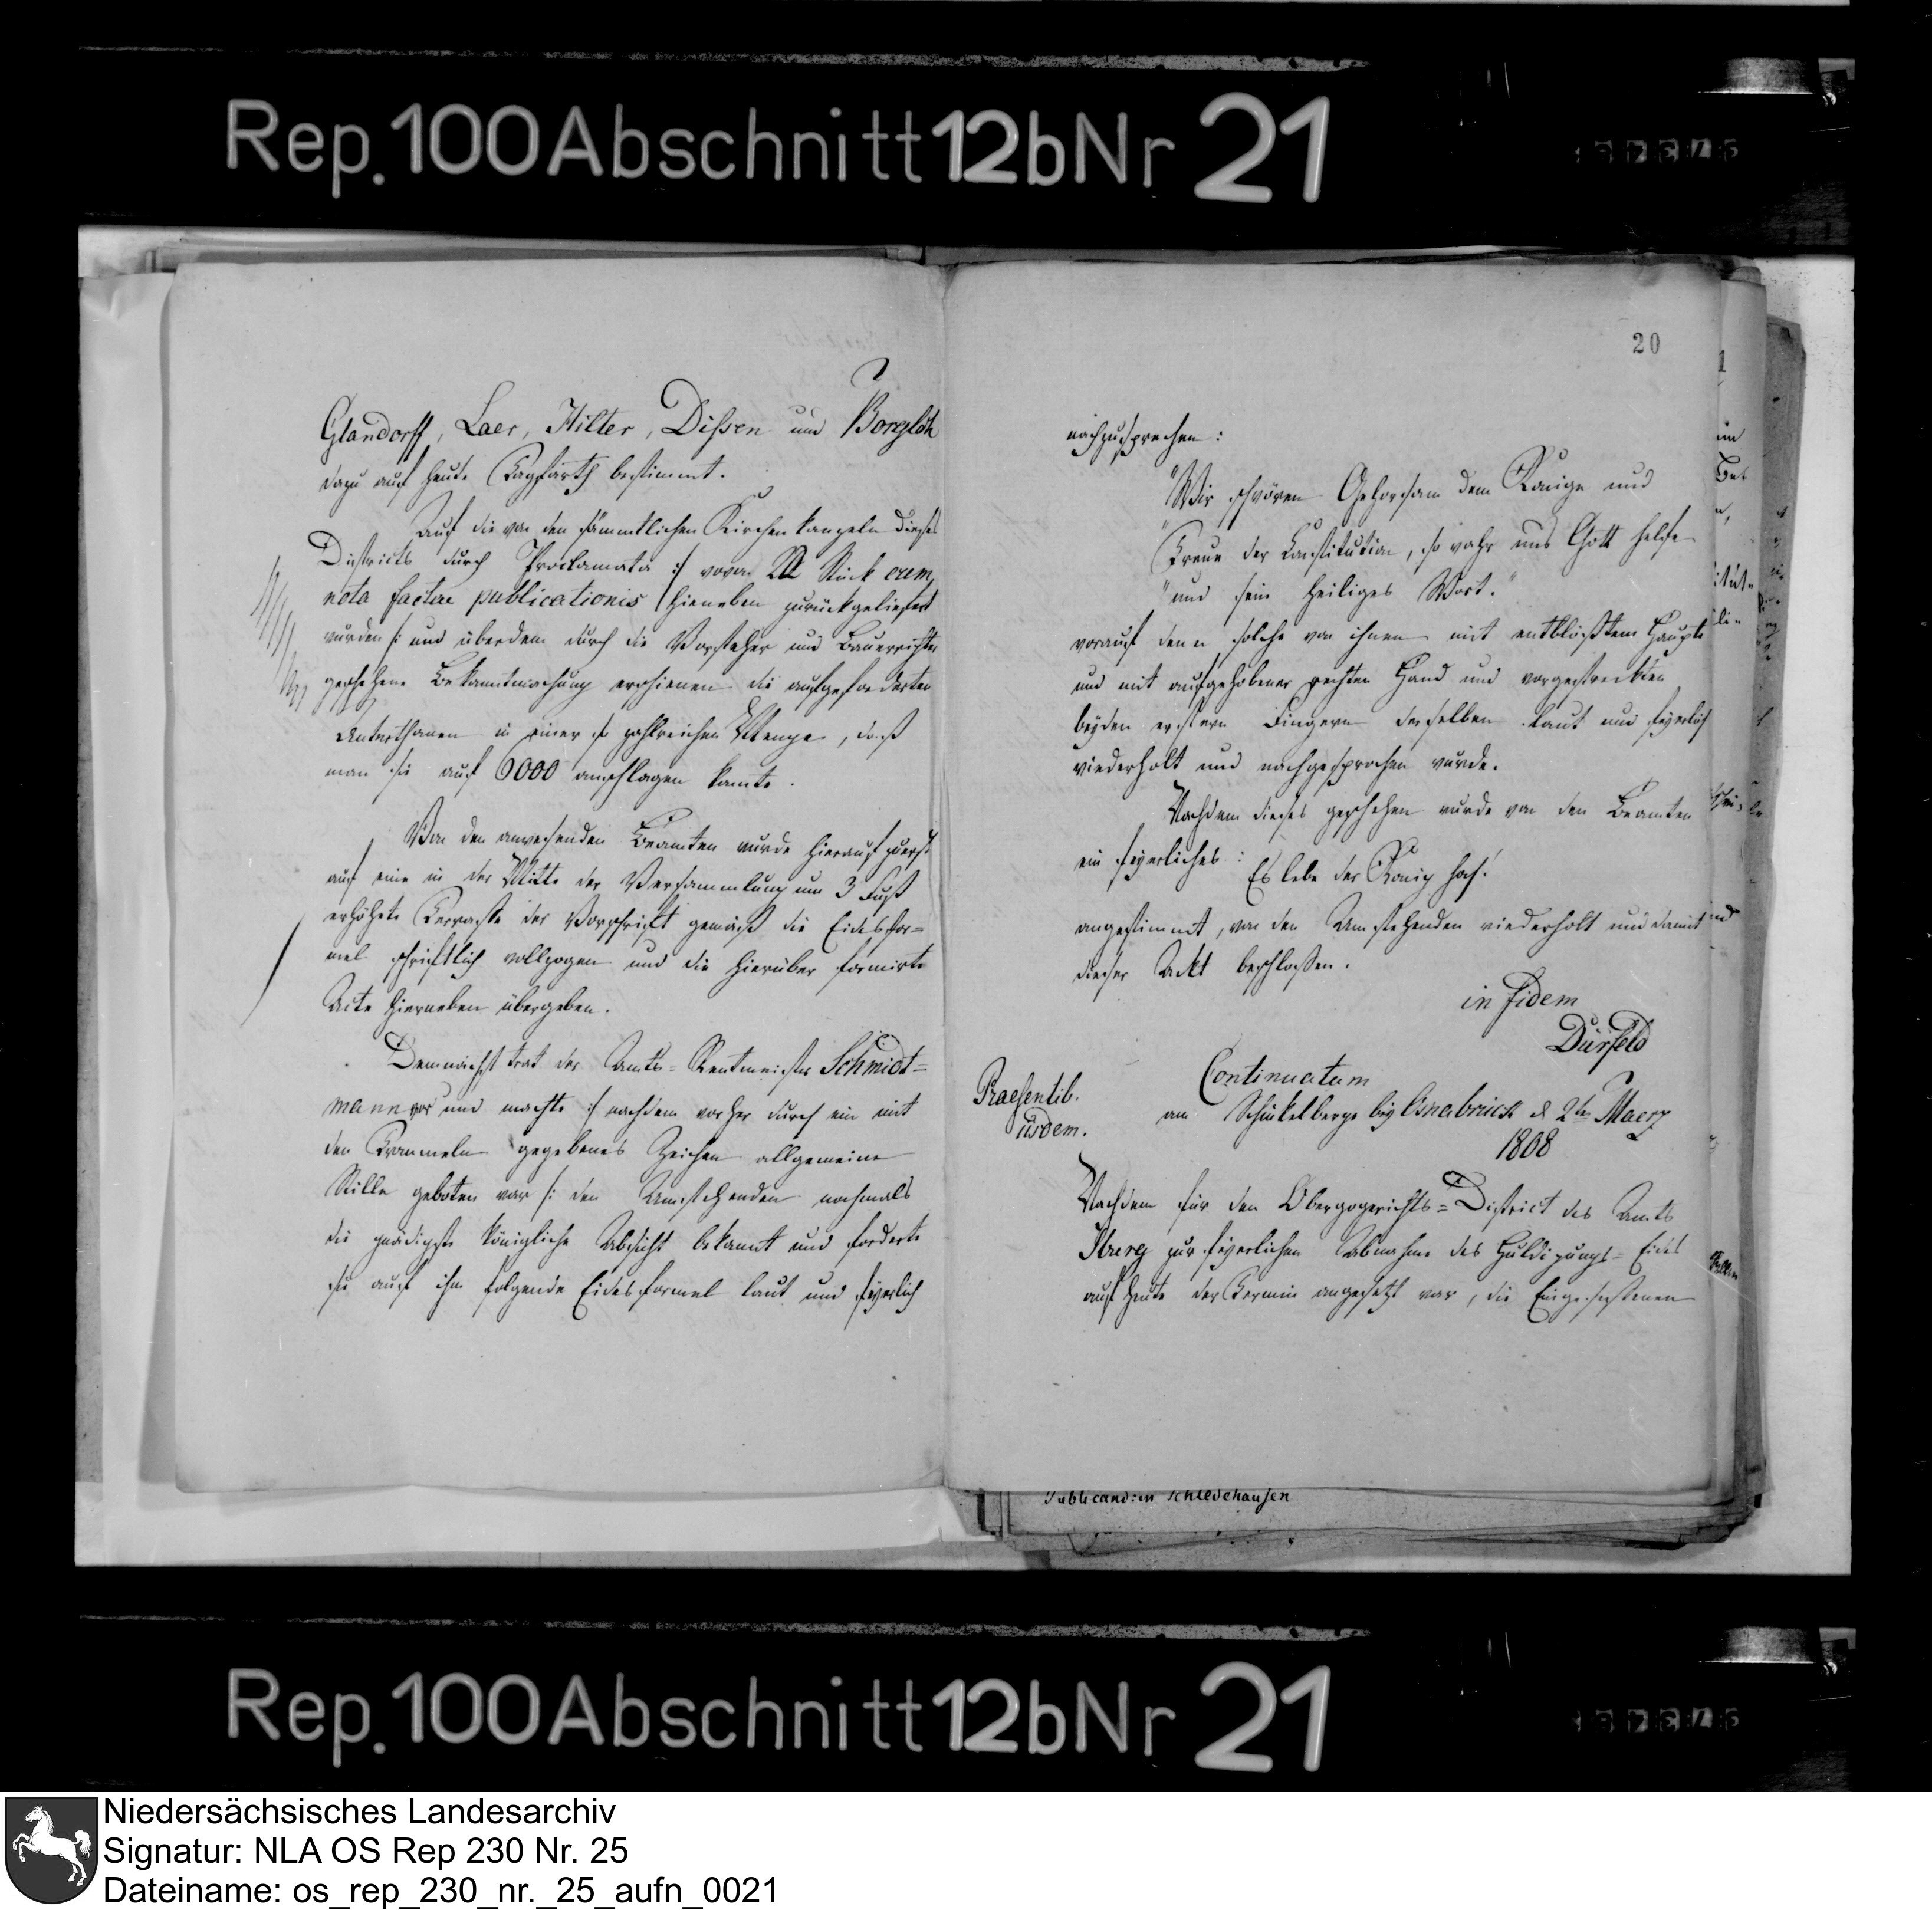 Rep. 100 Abschnitt 12b Nr 21
Glandorff, Laer, Hilter, Dißen und Borgloh
dazu auf heute Tagfarth bestimmt.
Auf die von den sämmtlichen Kirchenkanzeln dieses
Districts durch Proclamata :/ wovon Stück cum
nota factae publicationis / hieneben zurückgeliefert
wurden /: und überdem durch die Vorsteher und Bauerrichter
geschehene Bekanntmachung erschienen die aufgeforderten
Unterthanen in einer so zahlreichen Menge, daß
man sie auf 6000 anschlagen konnte.
Von den anwesenden Beamten wurde hierauf zuerst
auf eine in der Mitte der Versammlung um 3 Fuß
erhöhete Terrasse der Vorschrift gemäß die Eidesfor=
mel schriftlich vollzogen und die hierüber formirte
Acte hierneben übergeben.
Demnächst trat der Amts=Rentmeister Schmidt=
mann vor und machte :/ nachdem vorher durch ein mit
den Trommeln gegebenes Zeichen allgemeine
Stille geboten war /: den Umstehenden nochmals
die gnädigste königliche Absicht bekannt und forderte
sie auf ihm folgende Eidesformel laut und feyerlich
20
nachzusprechen:
"Wir schwören Gehorsam dem Könige und
"Treue der Constitution, so wahr uns Gott helfe
"und sein heiliges Wort."
worauf denn solche von ihnen mit entblößtem Haupte
und mit aufgehobener rechten Hand und vorgestreckten
beyden erstern Fingern derselben laut und feyerlich
wiederholt und nachgesprochen wurde.
Nachdem dieses geschehen wurde von den Beamten
ein feyerliches:
Es lebe der König hoch!
angestimmt, von den Umstehenden wiederholt und damit
dieser Ackt beschloßen.
in fidem
Dürfeld
Continuatum
Praesentib.
iisdem.
am Schinkelberge bey Osnabrück d 2ten Maerz
1808
Nachdem für den Obergogerichts=District des Amts
Iburg zur feyerlichen Abnahme des Huldigungs=Eides
auf heute der Termin angesetzt war, die Eingesessenen
Publicand: in Schledehausen
Rep. 100 Abschnitt 12b Nr 21
Niedersächsisches Landesarchiv
Signatur: NLA OS Rep 230 Nr. 25
Dateiname: os_rep_230_nr._25_aufn_0021